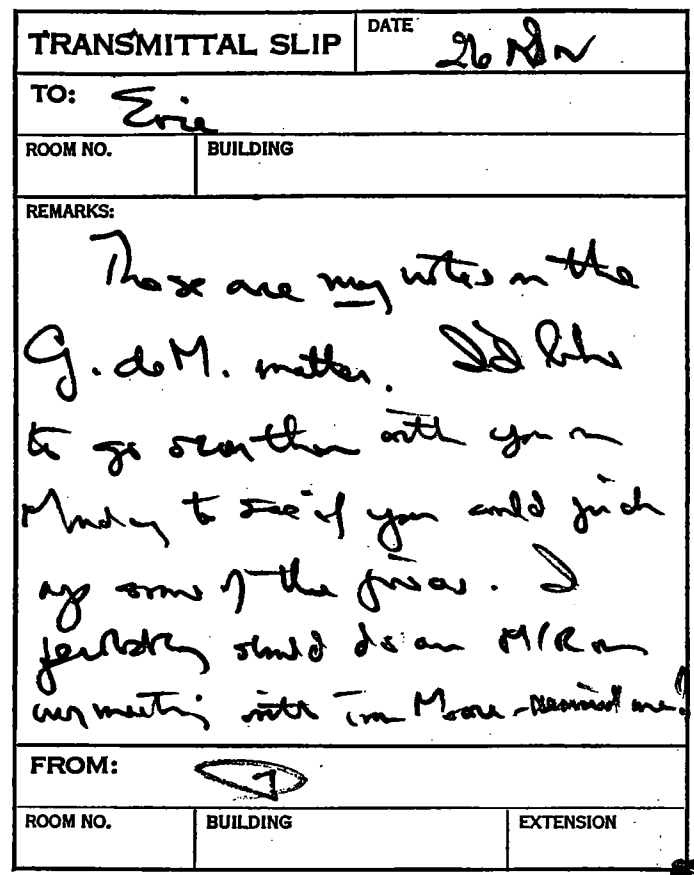 TRANSMITTAL SLIP
DATE
26 Nov
TO:
Eric
ROOM NO.
BUILDING
REMARKS:
These are my notes on the
G. de M. matter. I'd like
to go over them with you on
Monday to see if you could pick
up some of the pieces. I
probably should do an M/R on
our meeting with Tom Moore - remind me!
FROM:
ROOM NO.
BUILDING
EXTENSION